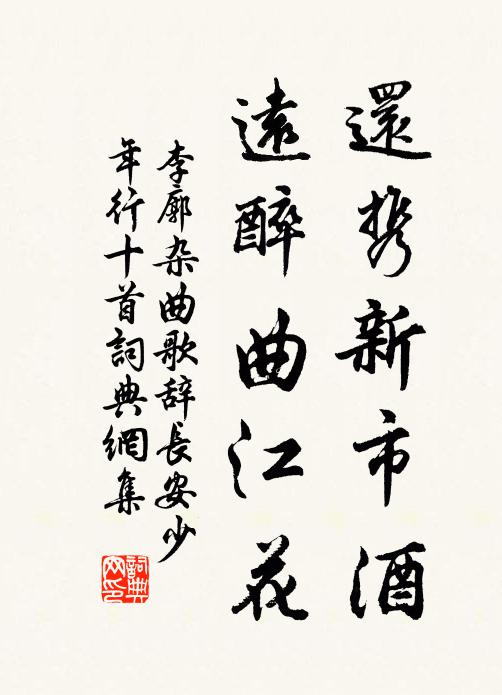 還携新市酒
遠醉曲江花
李廓杂曲歌辞長安少
年行十首詞典網集
詞典
网印